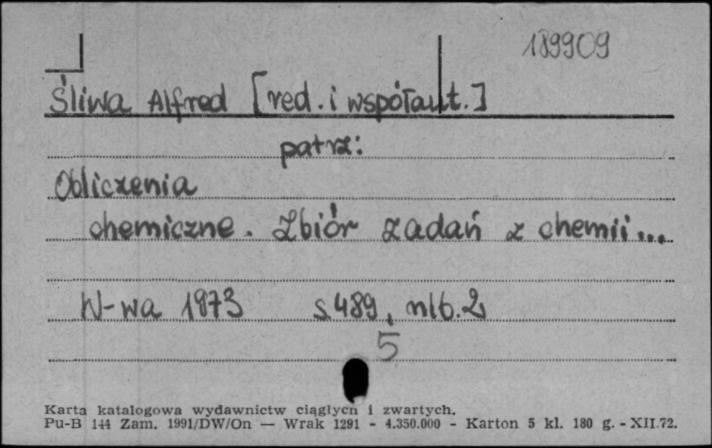 189909
Śliwa Alfred [red. i współaut.]
patrz:
Obliczenia
chemiczne. Zbiór zadań z chemii...
W-wa 1973 s. 489, nlb. 2
5
Karta katalogowa wydawnictw ciągłych i zwartych.
Pu-B 144 Zam. 1991/DW/On — Wrak 1291 - 4.350.000 - Karton 5 kl. 180 g. - XII.72.